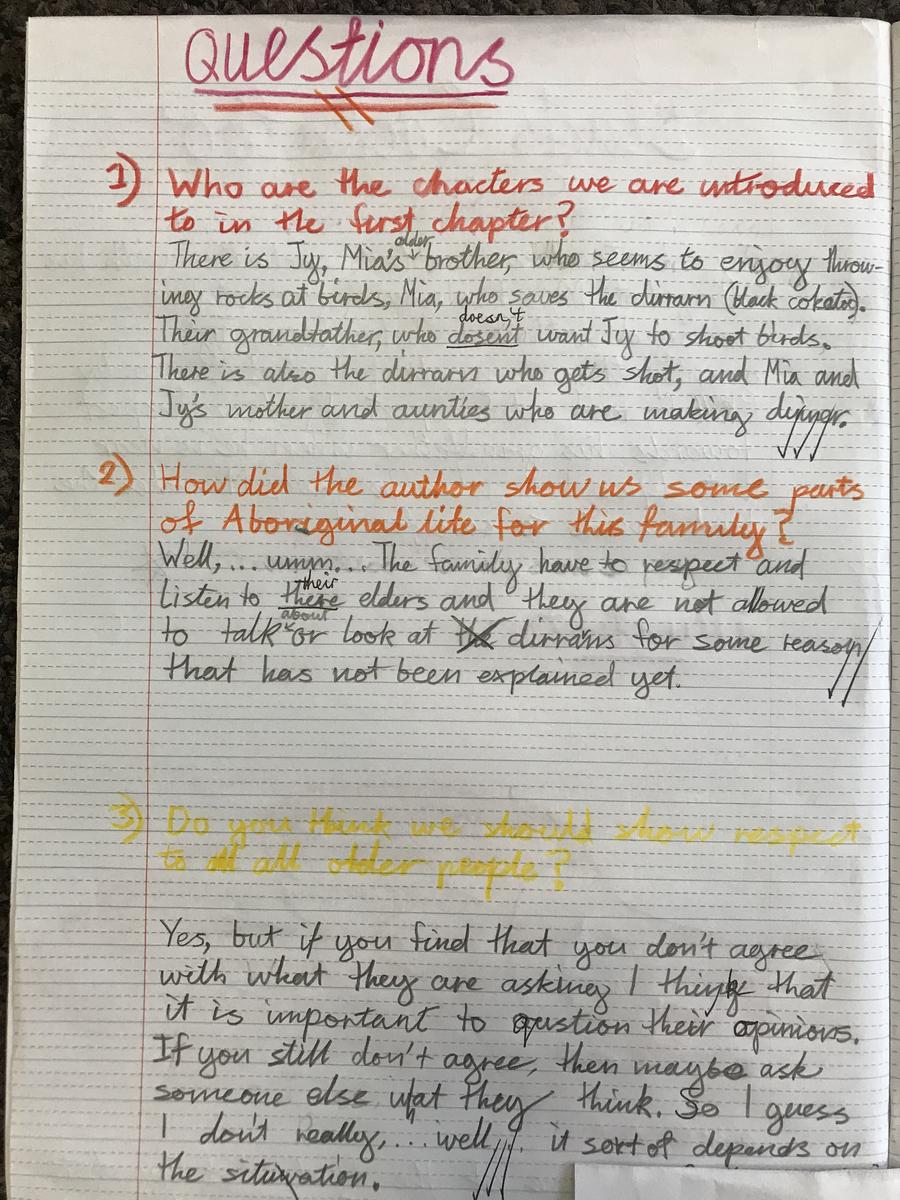 Questions
1) Who are the chacters we are introduced
to in the first chapter?
older
There is Jy, Mia's brother, who seems to enjoy throw-
ing rocks at birds, Mia, who saves the dirrarn (black cokatoo).
doesn't
Their grandfather, who dosent want Jy to shoot birds.
There is also the dirrarn who gets shot, and Mia and
Jy's mother and aunties who are making dinner.
2) How did the author show us some parts
of Aboriginal life for this family?
Well,... umm... The family have to respect and
their
Listen to there elders and they are not allowed
about
to talk or look at the dirrarns for some reason
that has not been explained yet.
3) Do you think we should show respect
to all all older people?
Yes, but if you find that you don't agree
with what they are asking I think that
it is important to qustion their opinions.
If you still don't agree, then maybe ask
someone else what they think. So I guess
I don't really,... well,... it sort of depends on
the situwation.